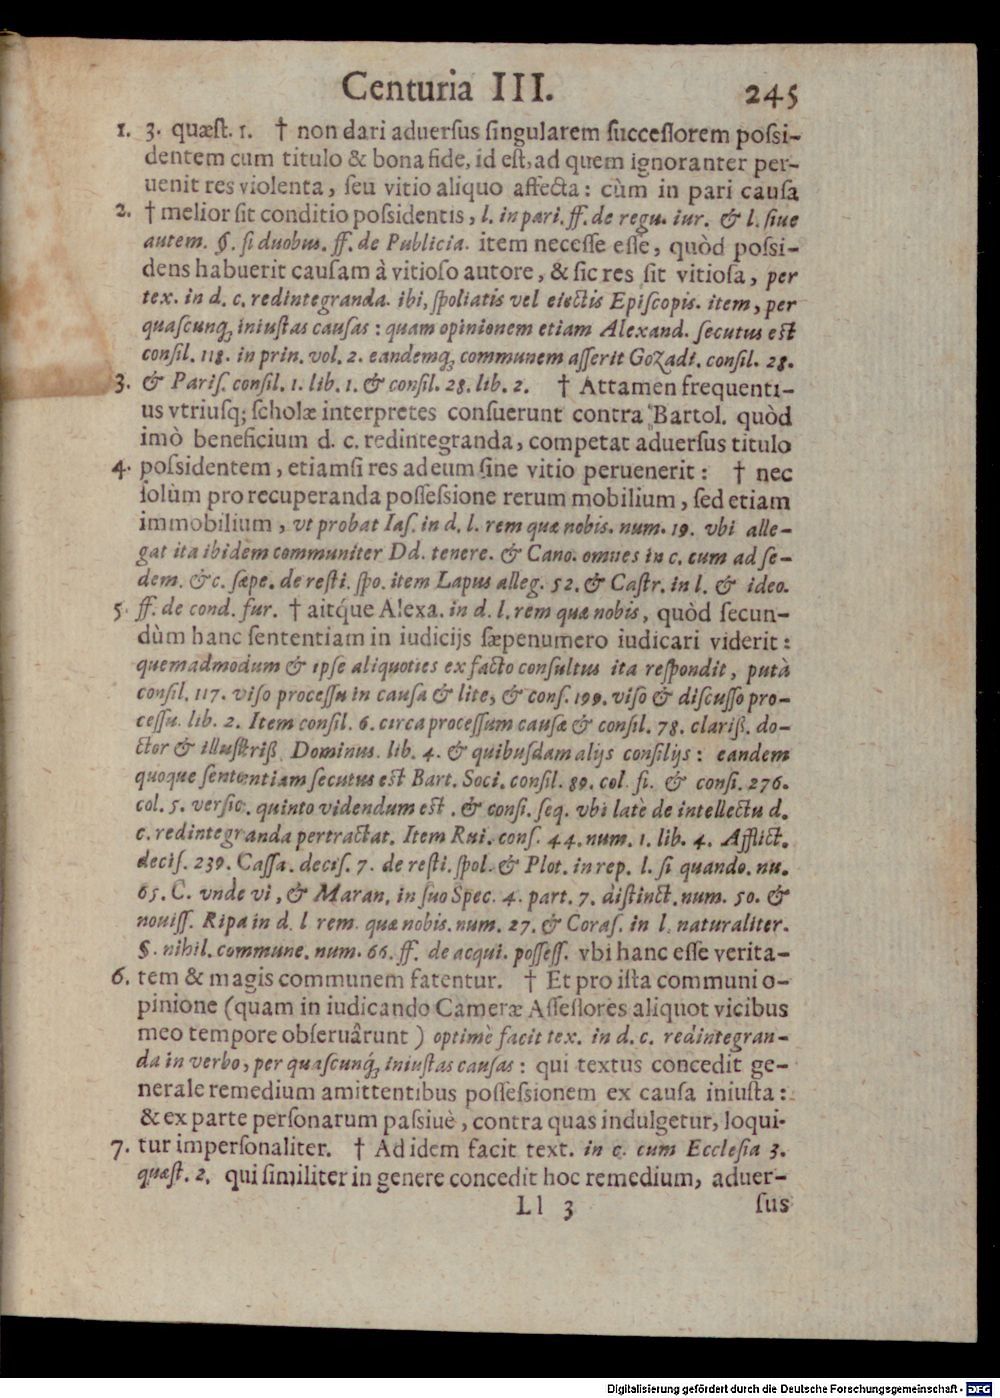 Centuria III. 245
1. 3. quæst. 1. † non dari aduersus singularem successorem possi-
dentem cum titulo & bona fide, id est, ad quem ignoranter per-
uenit res violenta, seu vitio aliquo affecta: cùm in pari causa
2. † melior sit conditio possidentis, l. in pari. ff. de regu. iur. & l. siue
autem. §. si duobus. ff. de Publicia. item necesse esse, quòd possi-
dens habuerit causam à vitioso autore, & sic res sit vitiosa, per
tex. in d. c. redintegranda. ibi, spoliatis vel eiectis Episcopis. item, per
quascunq; iniustas causas: quam opinionem etiam Alexand. secutus est
consil. 118. in prin. vol. 2. eandemq; communem asserit Gozadi. consil. 28.
3. & Paris. consil. 1. lib. 1. & consil. 28. lib. 2. † Attamen frequenti-
us vtriusq; scholæ interpretes consuerunt contra Bartol. quòd
imò beneficium d. c. redintegranda, competat aduersus titulo
4. possidentem, etiamsi res ad eum sine vitio peruenerit: † nec
solùm pro recuperanda possessione rerum mobilium, sed etiam
immobilium, vt probat Ias. in d. l. rem quæ nobis. num. 19. vbi alle-
gat ita ibidem communiter Dd. tenere. & Cano. omnes in c. cum ad se-
dem. &c. sæpe. de resti. spo. item Lapus alleg. 52. & Castr. in l. & ideo.
5. ff. de cond. fur. † aitq́ue Alexa. in d. l. rem quæ nobis, quòd secun-
dùm hanc sententiam in iudicijs sæpenumero iudicari viderit:
quemadmodum & ipse aliquoties ex facto consultus ita respondit, putà
consil. 117. viso processu in causa & lite, & cons. 199. viso & discusso pro-
cessu. lib. 2. Item consil. 6. circa processum causæ & consil. 78. clariß. do-
ctor & illustriß. Dominus. lib. 4. & quibusdam alijs consilijs: eandem
quoque sententiam secutus est Bart. Soci. consil. 89. col. fi. & consi. 276.
col. 5. versic. quinto videndum est. & consi. seq. vbi latè de intellectu d.
c. redintegranda pertractat. Item Rui. cons. 44. num. 1. lib. 4. Afflict.
decis. 239. Cassa. decis. 7. de resti. spol. & Plot. in rep. l. si quando. nu.
65. C. vnde vi, & Maran. in suo Spec. 4. part. 7. distinct. num. 50. &
nouiss. Ripa in d. l rem. quæ nobis. num. 27. & Coras. in l. naturaliter.
§. nihil. commune. num. 66. ff. de acqui. possess. vbi hanc esse verita-
6. tem & magis communem fatentur. † Et pro ista communi o-
pinione (quam in iudicando Cameræ Assessores aliquot vicibus
meo tempore obseruârunt) optimè facit tex. in d. c. redintegran-
da in verbo, per quascunq́; iniustas causas: qui textus concedit ge-
nerale remedium amittentibus possessionem ex causa iniusta:
& ex parte personarum passiuè, contra quas indulgetur, loqui-
7. tur impersonaliter. † Ad idem facit text. in c. cum Ecclesia 3.
quæst. 2. qui similiter in genere concedit hoc remedium, aduer-
Ll 3 sus
Digitalisierung gefördert durch die Deutsche Forschungsgemeinschaft - DFG